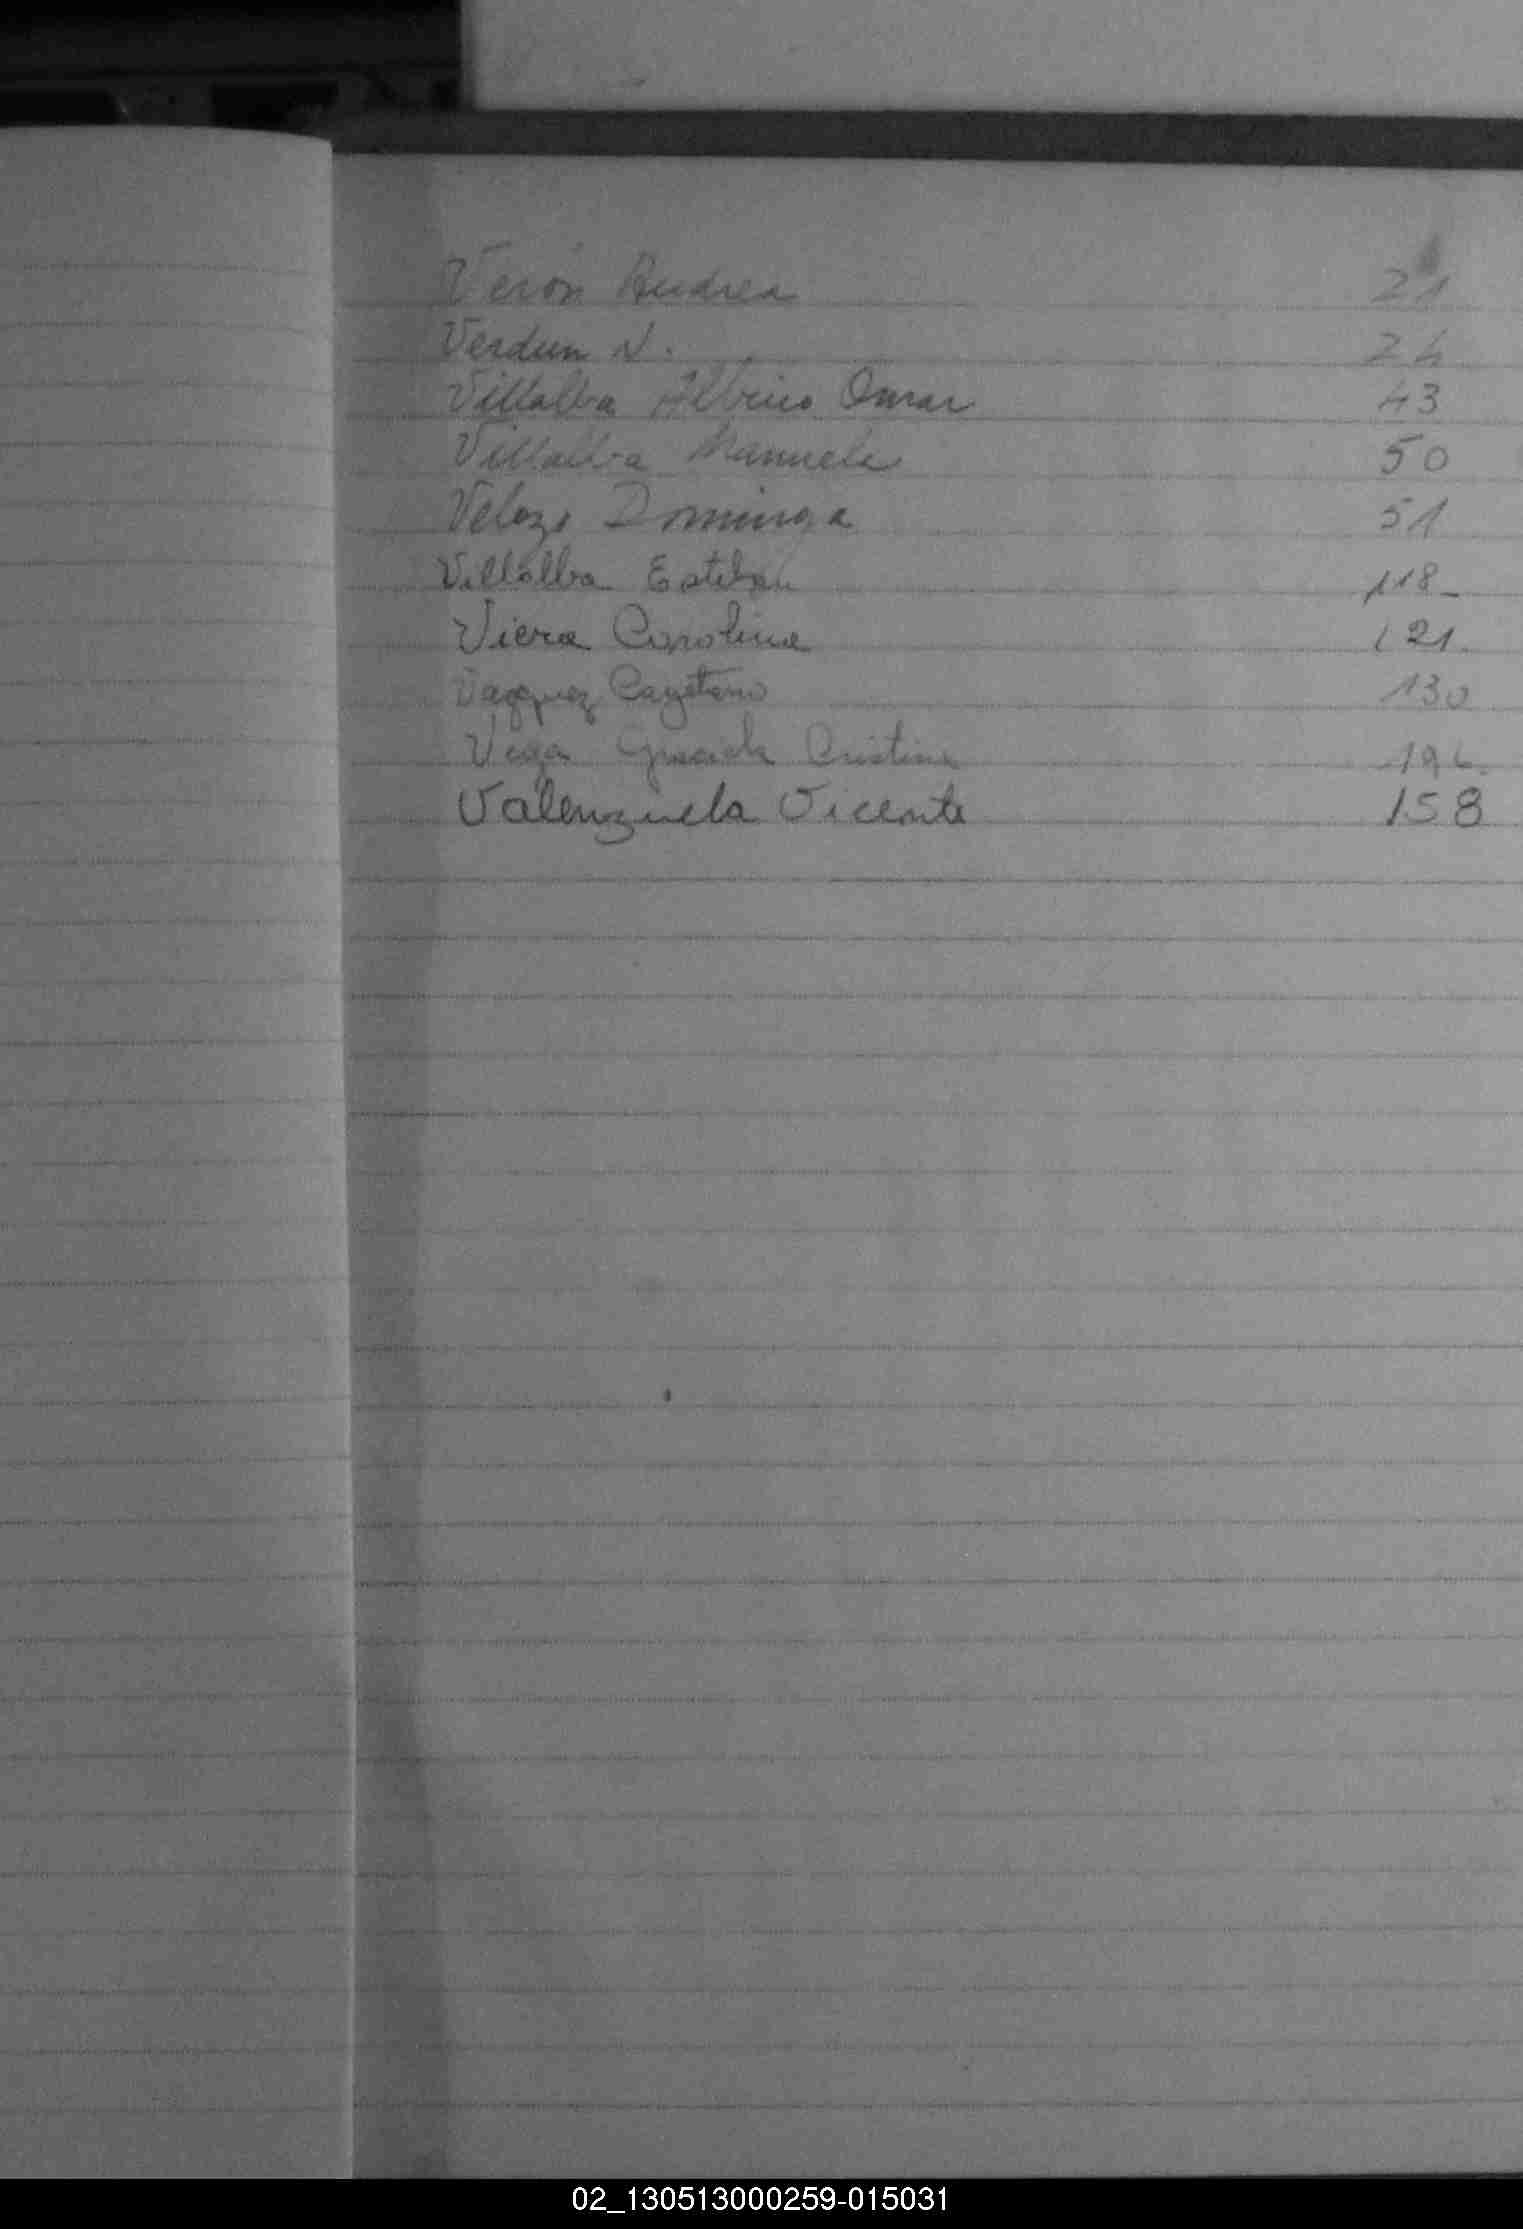 Verón Andrea 21
Verdun N. 24
Villalba Albrico Omar 43
Villalba Manuela 50
Velozo Dominga 51
Villalba Esteban 118
Viera Carolina 121
Vazquez Cayetano 130
Vega Graciela Cristina
Valenzuela Vicente 158
02_130513000259-015031